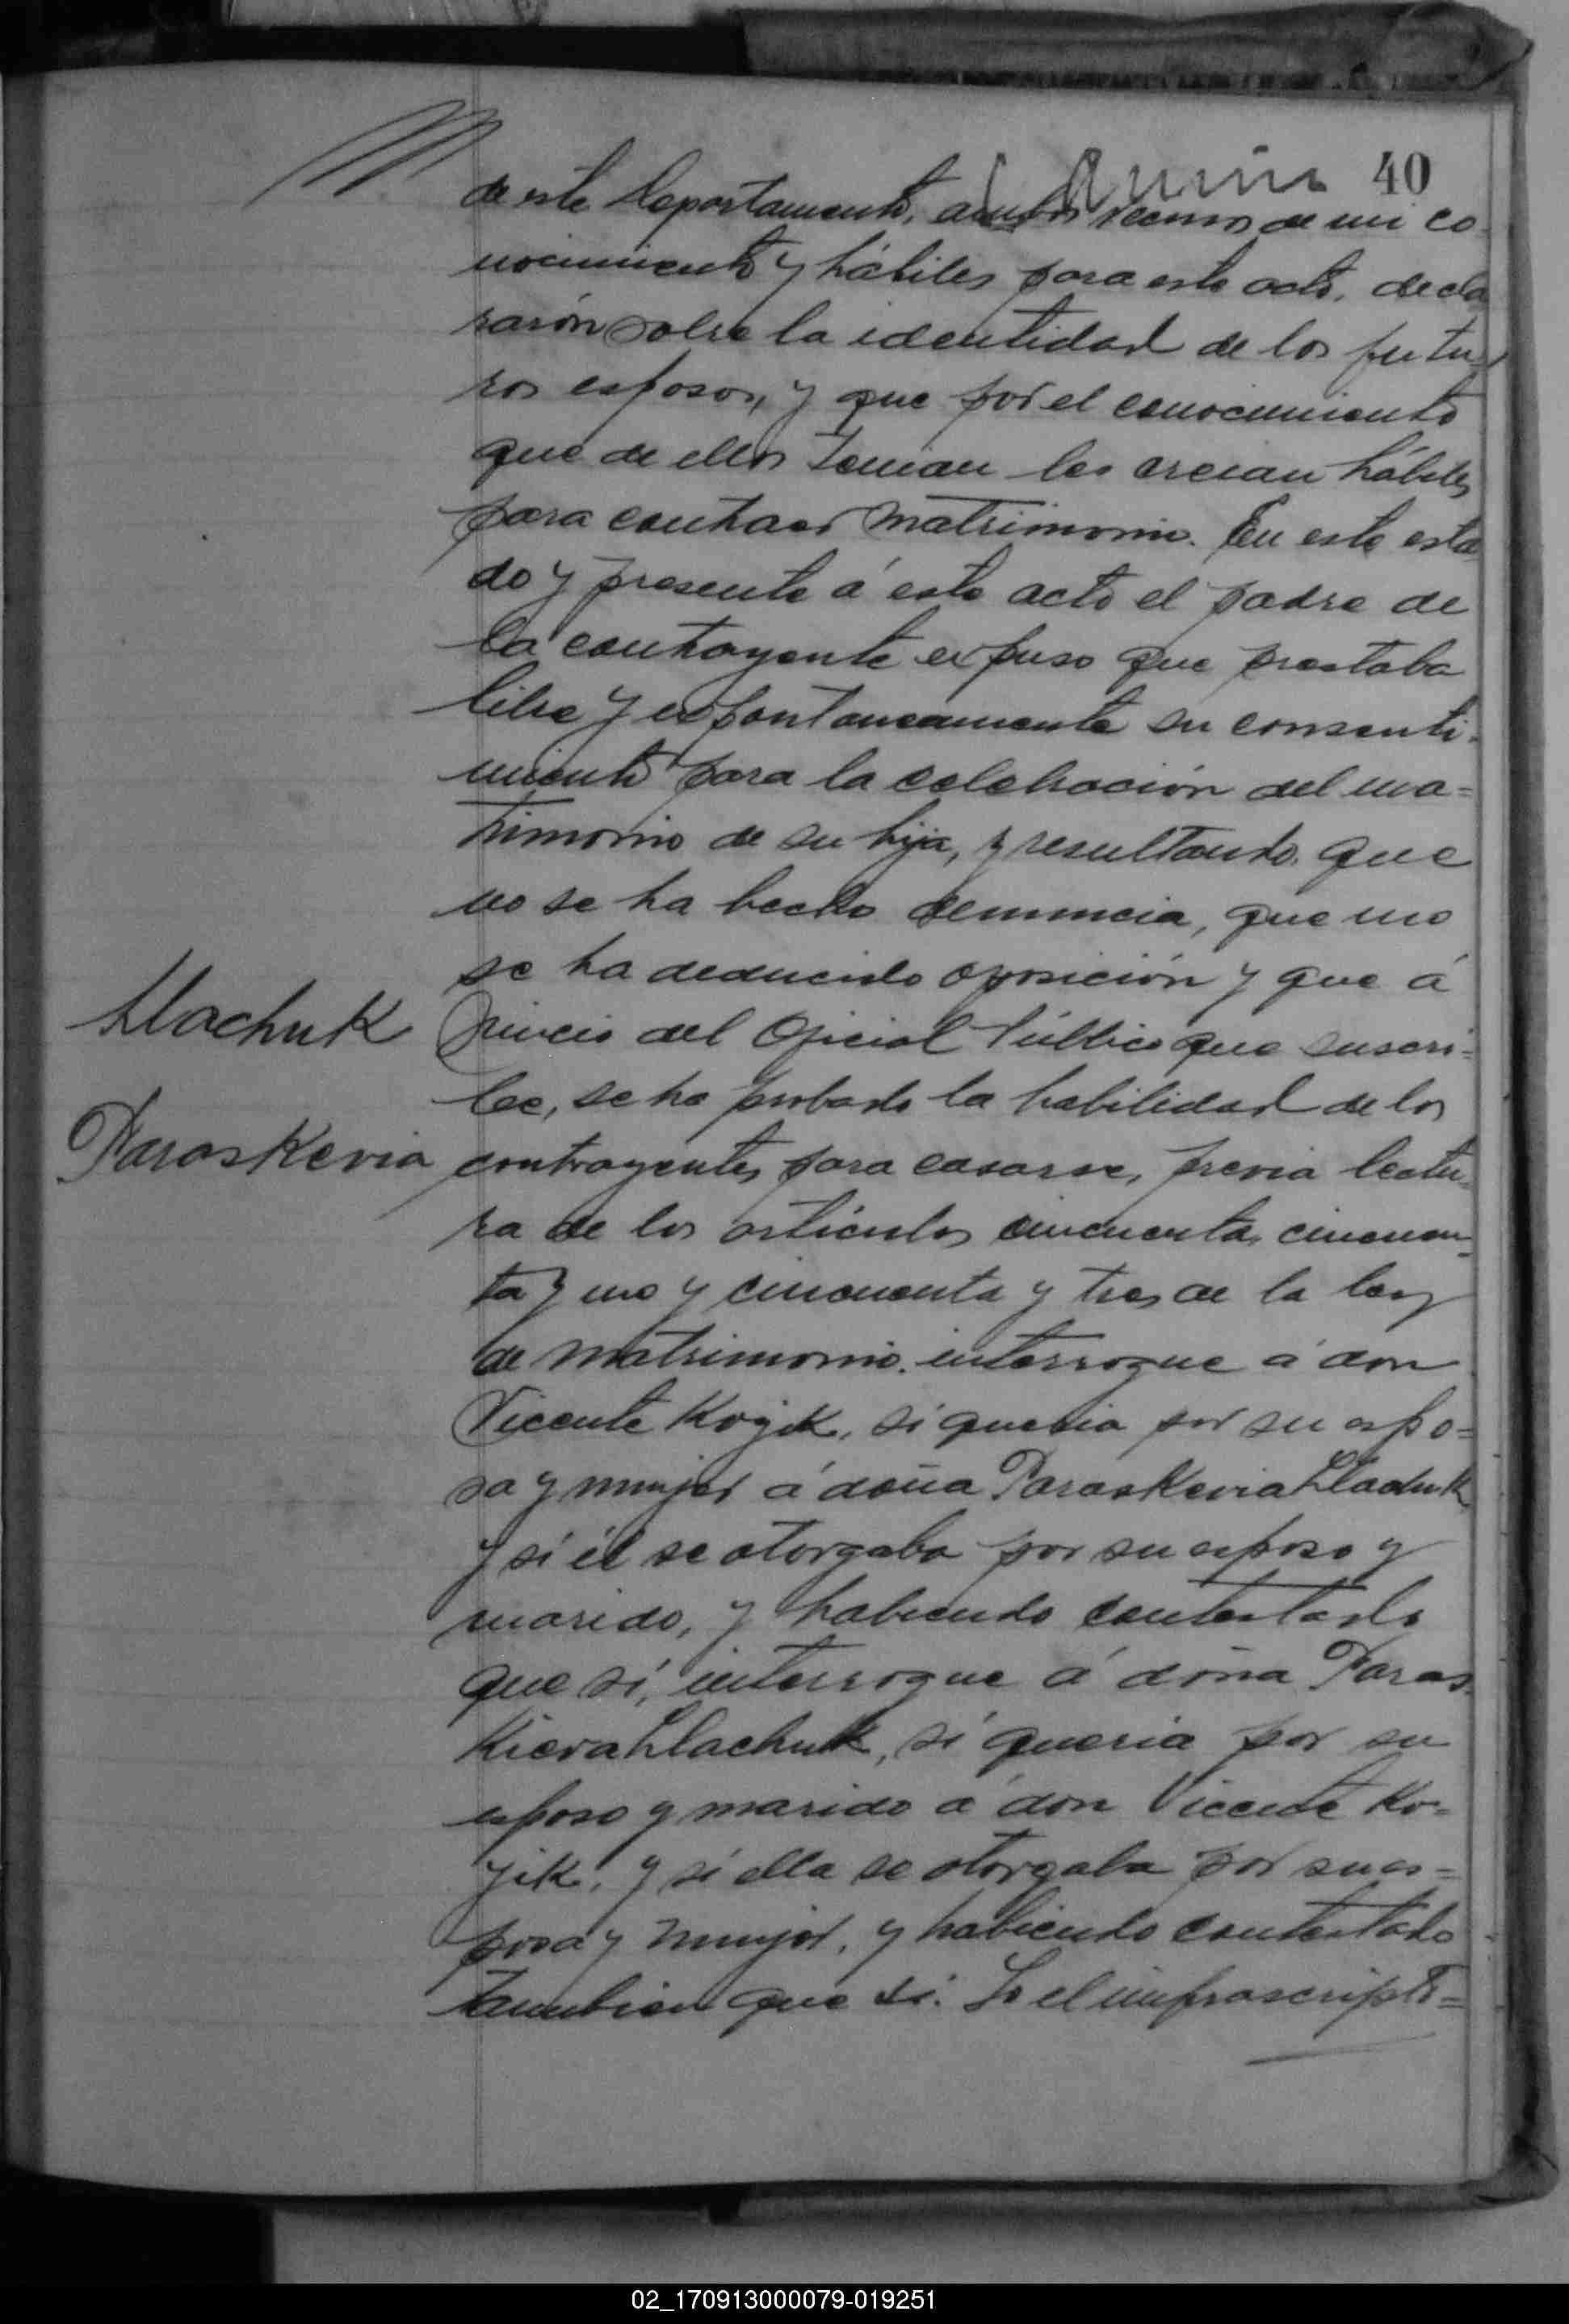 40
de este Departamento, ambos vecinos de mi co-
nocimiento y hábiles para este acto, decla
rarón sobre la identidad de los futu-
ros esposos, y que por el conocimiento
que de ellos tenian los creian hábiles
para contraer matrimonio. En este esta
do y presente á este acto el padre de
la contrayente expuso que prestaba
libre y espontaneamente su consenti-
miento para la celebración del ma=
trimonio de su hija, y resultando que
no se ha hecho denuncia, que no
se ha deducido oposición y que á
juicio del Oficial Público que suscri=
be, se ha probado la habilidad de los
contrayentes para casarse, previa lectu-
ra de los artículos cincuenta, cincuen=
ta y uno y cincuenta y tres de la ley
de matrimonio. interrogue á don
Vicente Kojik, si queria por su espo=
sa y mujer á doña Paraskevia Llachuk
y si él se otorgaba por su esposo y
marido, y habiendo contestado
que sí, interrogue á doña Paras-
kieva Llachuk, si queria por su
esposo y marido á don Vicente Ko=
yik, y si ella se otorgaba por su es=
posa y mujer, y habiendo contestado
tambien que si. Yo el infrascripto=
Llachuk
Paraskevia
02_170913000079-019251